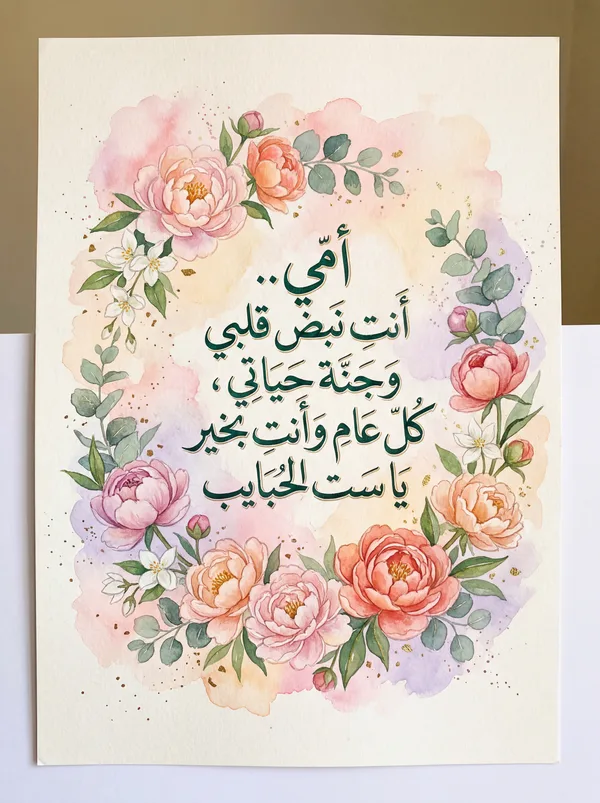 أمّي..
أَنتِ نَبض قلبي
وَجَنَّة حَيَاتِي،
كُلّ عَام وَأَنتِ بخير
يَا سَت الحُبَايب